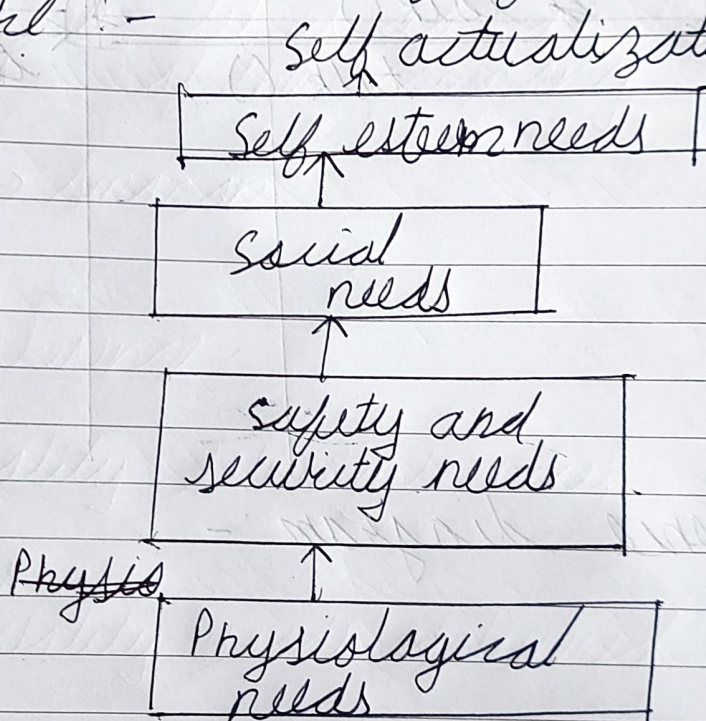 Self actualizat
Self esteem needs
Social
needs
Safety and
security needs
Physiological
needs